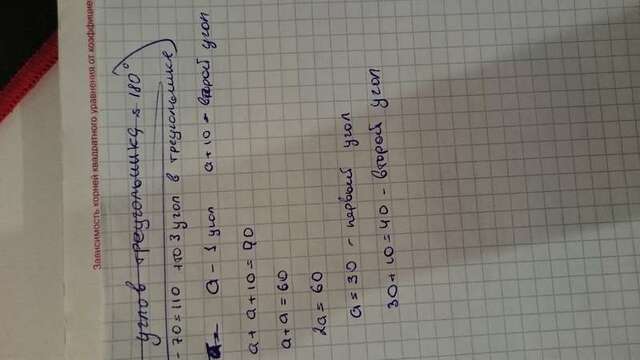 Зависимость корней квадратного уравнения от коэффицие
углов треугольника = 180°
- 70 = 110 это 3 угол в треугольнике
a - 1 угол a + 10 - второй угол
a + a + 10 = 70
a + a = 60
2a = 60
a = 30 - первый угол
30 + 10 = 40 - второй угол